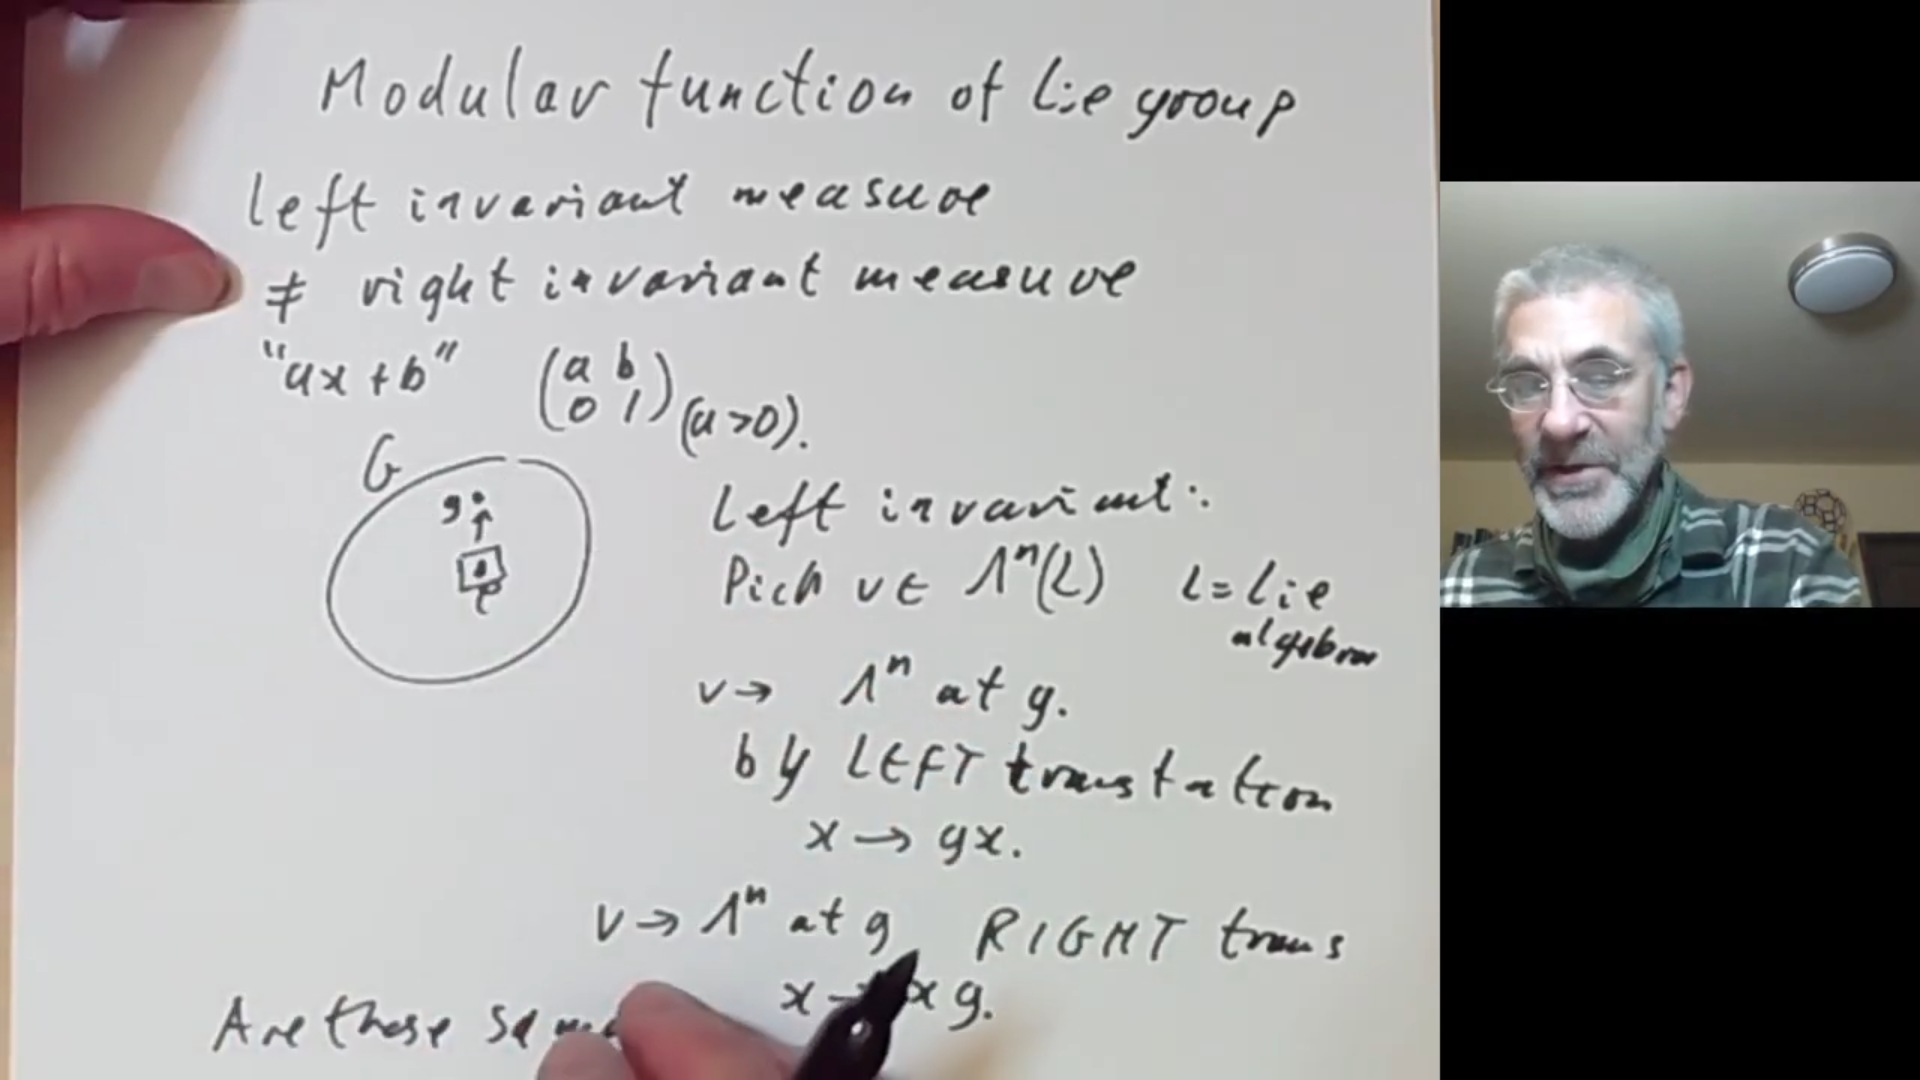 Modular function of Lie group
left invariant measure
≠ right invariant measure
"ax+b" (a b
0 1) (a>0).
G
g
e
Left invariant:
Pick v ∈ Λⁿ(L) L = Lie
algebra
v → Λⁿ at g.
by LEFT translation
x → gx.
v → Λⁿ at g RIGHT trans
x → xg.
Are these